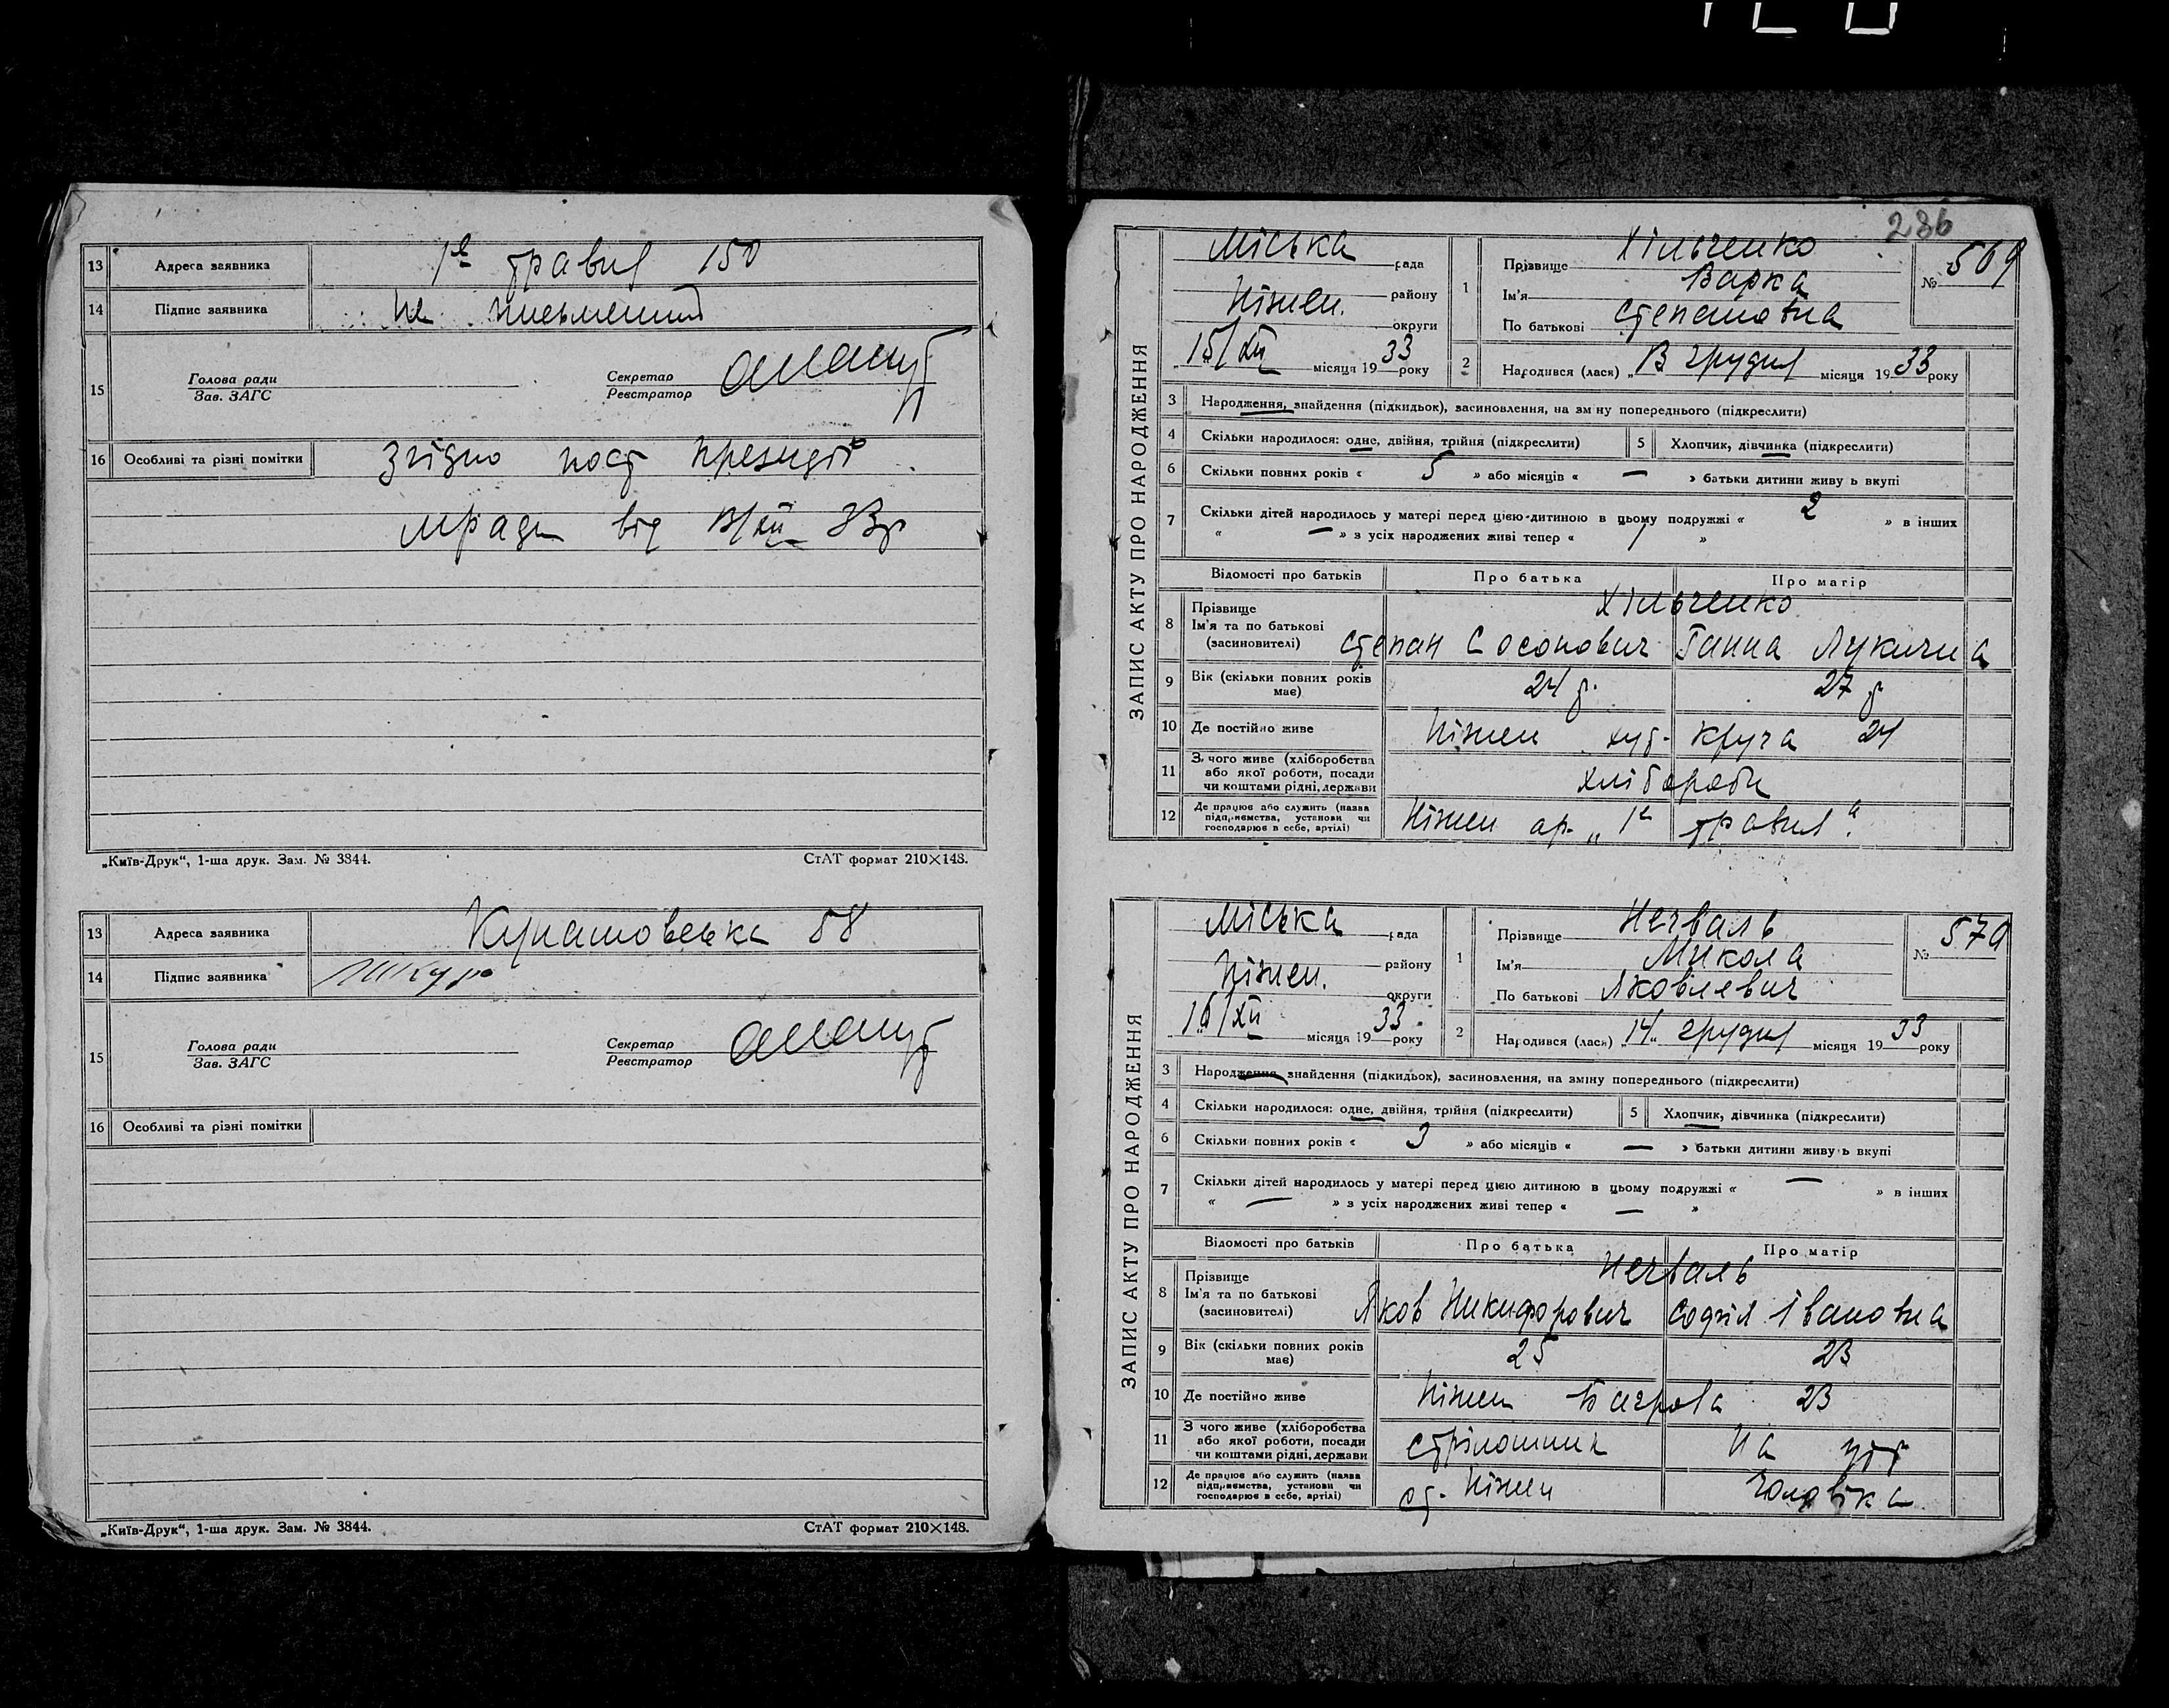 13 Адреса заявника 1е травня 150
14 Підпис заявника не письменний
15 Голова ради Секретар
Зав. ЗАГС Реєстратор
16 Особливі та різні помітки Згідно пост президії
мради від 13/XII 33р
„Київ-Друк“, 1-ша друк. Зам. № 3844. СтАТ формат 210×148.
13 Адреса заявника 58
14 Підпис заявника
15 Голова ради Секретар
Зав. ЗАГС Реєстратор
16 Особливі та різні помітки
„Київ-Друк“, 1-ша друк. Зам. № 3844. СтАТ формат 210×148.
236
ЗАПИС АКТУ ПРО НАРОДЖЕННЯ
Міська рада
Ніжен. району
округи
„15/XII місяця 1933 року
1 Прізвище Хільченко
Ім'я Варка
По батькові Степановна
№ 569
2 Народився (лася) „13 грудня місяця 1933 року
3 Народження, знайдення (підкидьок), засиновлення, на зміну попереднього (підкреслити)
4 Скільки народилося: одне, двійня, трійня (підкреслити) 5 Хлопчик, дівчинка (підкреслити)
6 Скільки повних років « 5 » або місяців « — » батьки дитини живуть вкупі
7 Скільки дітей народилось у матері перед цією дитиною в цьому подружжі « 2 » в інших
« — » з усіх народжених живі тепер « 1 »
Відомості про батьків Про батька Про матір
8 Прізвище Хільченко
Ім'я та по батькові
(засиновителі) Степан Сосонович Ганна Лукична
9 Вік (скільки повних років має) 24 р. 27 р
10 Де постійно живе Ніжен хут. Круча 24
11 З чого живе (хліборобства
або якої роботи, посади
чи коштами рідні, держави хлібороби
12 Де працює або служить (назва
підприємства, установи чи
господарює в себе, артілі) Ніжен ар. „1е травня“
ЗАПИС АКТУ ПРО НАРОДЖЕННЯ
Міська рада
Ніжен. району
округи
„16/XII місяця 1933 року
1 Прізвище Нечваль
Ім'я Микола
По батькові Яковлевич
№ 570
2 Народився (лася) „14“ грудня місяця 1933 року
3 Народження, знайдення (підкидьок), засиновлення, на зміну попереднього (підкреслити)
4 Скільки народилося: одне, двійня, трійня (підкреслити) 5 Хлопчик, дівчинка (підкреслити)
6 Скільки повних років « 3 » або місяців « — » батьки дитини живуть вкупі
7 Скільки дітей народилось у матері перед цією дитиною в цьому подружжі « — » в інших
« — » з усіх народжених живі тепер « — »
Відомості про батьків Про батька Про матір
8 Прізвище Нечваль
Ім'я та по батькові
(засиновителі) Яков Никифорович Софія Івановна
9 Вік (скільки повних років має) 25 23
10 Де постійно живе Ніжен 23
11 З чого живе (хліборобства
або якої роботи, посади
чи коштами рідні, держави стрілошник на утр
12 Де працює або служить (назва
підприємства, установи чи
господарює в себе, артілі) ст. Ніжен чоловіка